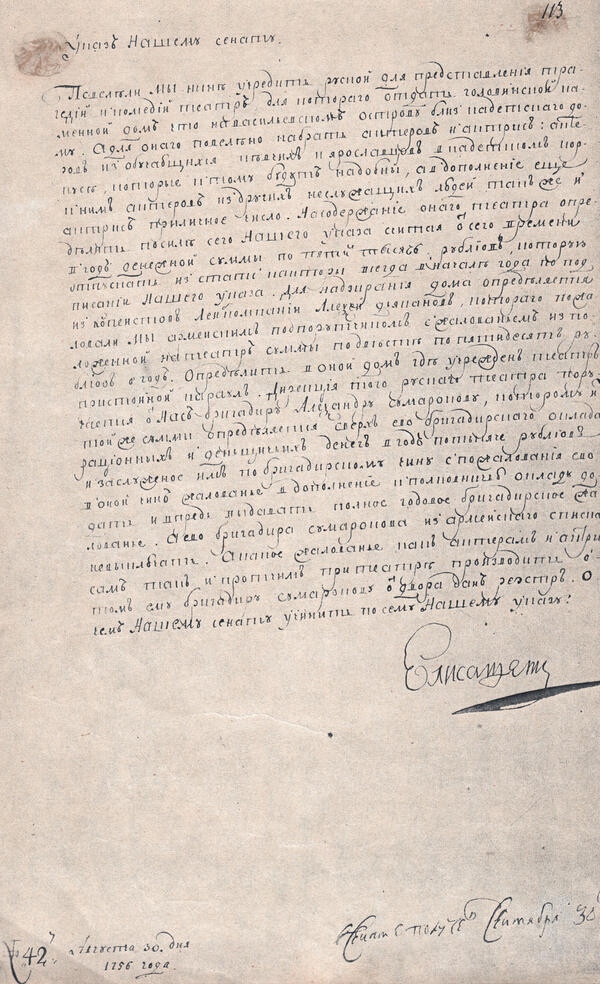 113
Указъ Нашему сенату.
Повелѣли мы нынѣ учредить руской для представленія тра-
гедій и комедій театръ, для котораго отдать головинской ка-
менной домъ, что на васильевскомъ острову близ кадетскаго до-
му. А для онаго повелѣно набрать актеровъ и актрисъ: актe-
ровъ из обучающихся пѣвчихъ и ярославцевъ в кадетскомъ кор-
пусѣ, которые к тому будутъ надобны, а в дополненіе еще
к нимъ актеровъ из другихъ неслужащихъ людей также и
актрисъ приличное число. На содержаніе онаго театра опре-
дѣлить по силѣ сего Нашего указа считая от сего времени
в годъ денежной суммы по пяти тысячь рублiовъ, которую
отпускать из статс канторы всегда в началѣ года по под
писаніи Нашего указа. Для надзиранія дома опредѣляется
из копеистовъ Лейпкомпаніи Алексѣй дьяконовъ, котораго пожа
ловали Мы армейскимъ подпорутчикомъ с жалованьемъ из по
ложенной на театръ суммы по двѣсти по пятидесятъ ру
бліовъ в годъ. Опредѣлить в оной домъ гдѣ учрежденъ театръ
пристойной караулъ. Дирекція того рускаго театра пору
чается от Насъ бригадиру Александру Сумарокову, которому из
той же суммы опредѣляется сверхъ ево бригадирскаго оклада
раціонныхъ и денщичьихъ денегъ в годъ по тысяче рубліовъ
и заслуженое имъ по бригадирскому чину с пожалованія ево
в оной чинъ жалованье в дополненіе к полковничью окладу до
дать и впредь выдавать полное годовое бригадирское жа
лованье. А ево бригадира сумарокова из армейскаго списка
невыключать. А какое жалованье какъ актерамъ и актри
самъ такъ и протчимъ при театрѣ производить о
томъ ему бригадиру сумарокову от двора данъ реэстръ. О
чемъ Нашему сенату учинить по сему Нашему указу:
Елисаветъ
42
Августа 30. дня
1756 года.
Сентября 30